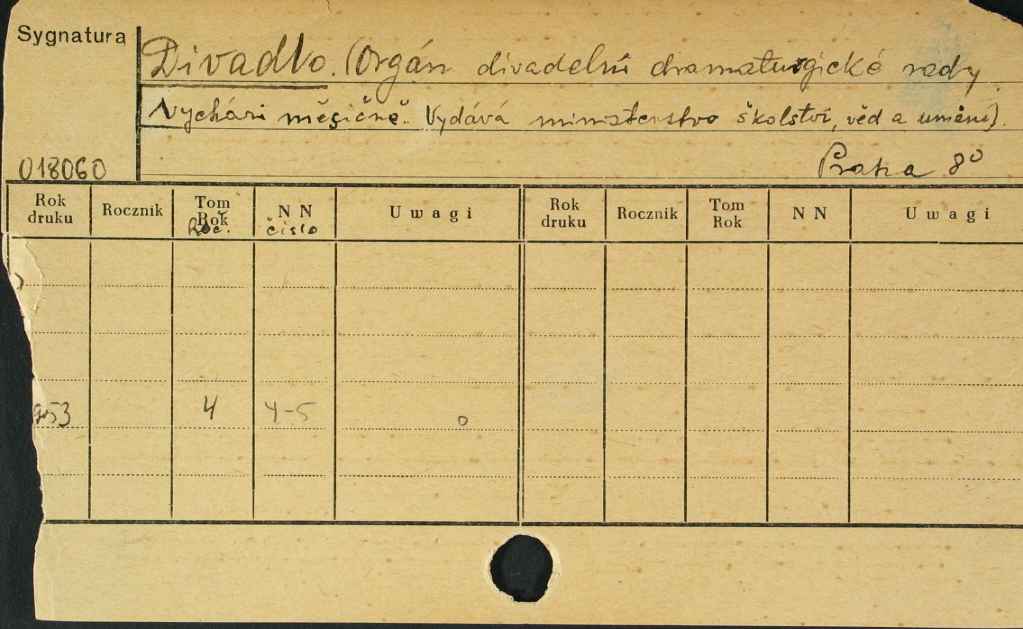 Sygnatura
Divadlo. (Orgán divadelní dramaturgické rady.
Vychází měsíčně. Vydává ministerstvo školství, věd a umění).
018060
Praha 8°
Rok druku Rocznik Tom Rok NN Uwagi Rok druku Rocznik Tom Rok NN Uwagi
Roč. číslo
953 4 4-5